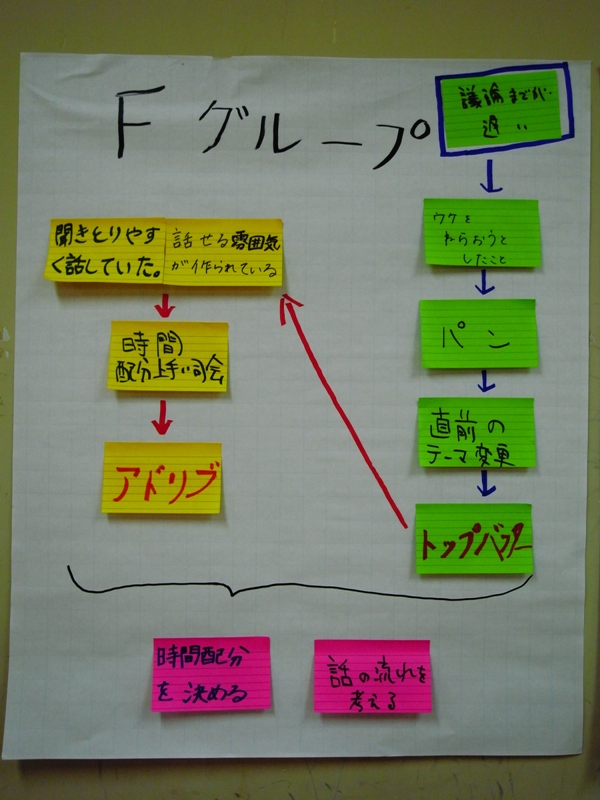 Fグループ
議論までが
遅い
ウケを
ねらおうと
したこと
パン
直前の
テーマ変更
トップバッター
聞きとりやす
く話していた。
話せる雰囲気
が作られている
時間
配分上手い司会
アドリブ
時間配分
を決める
話の流れを
考える